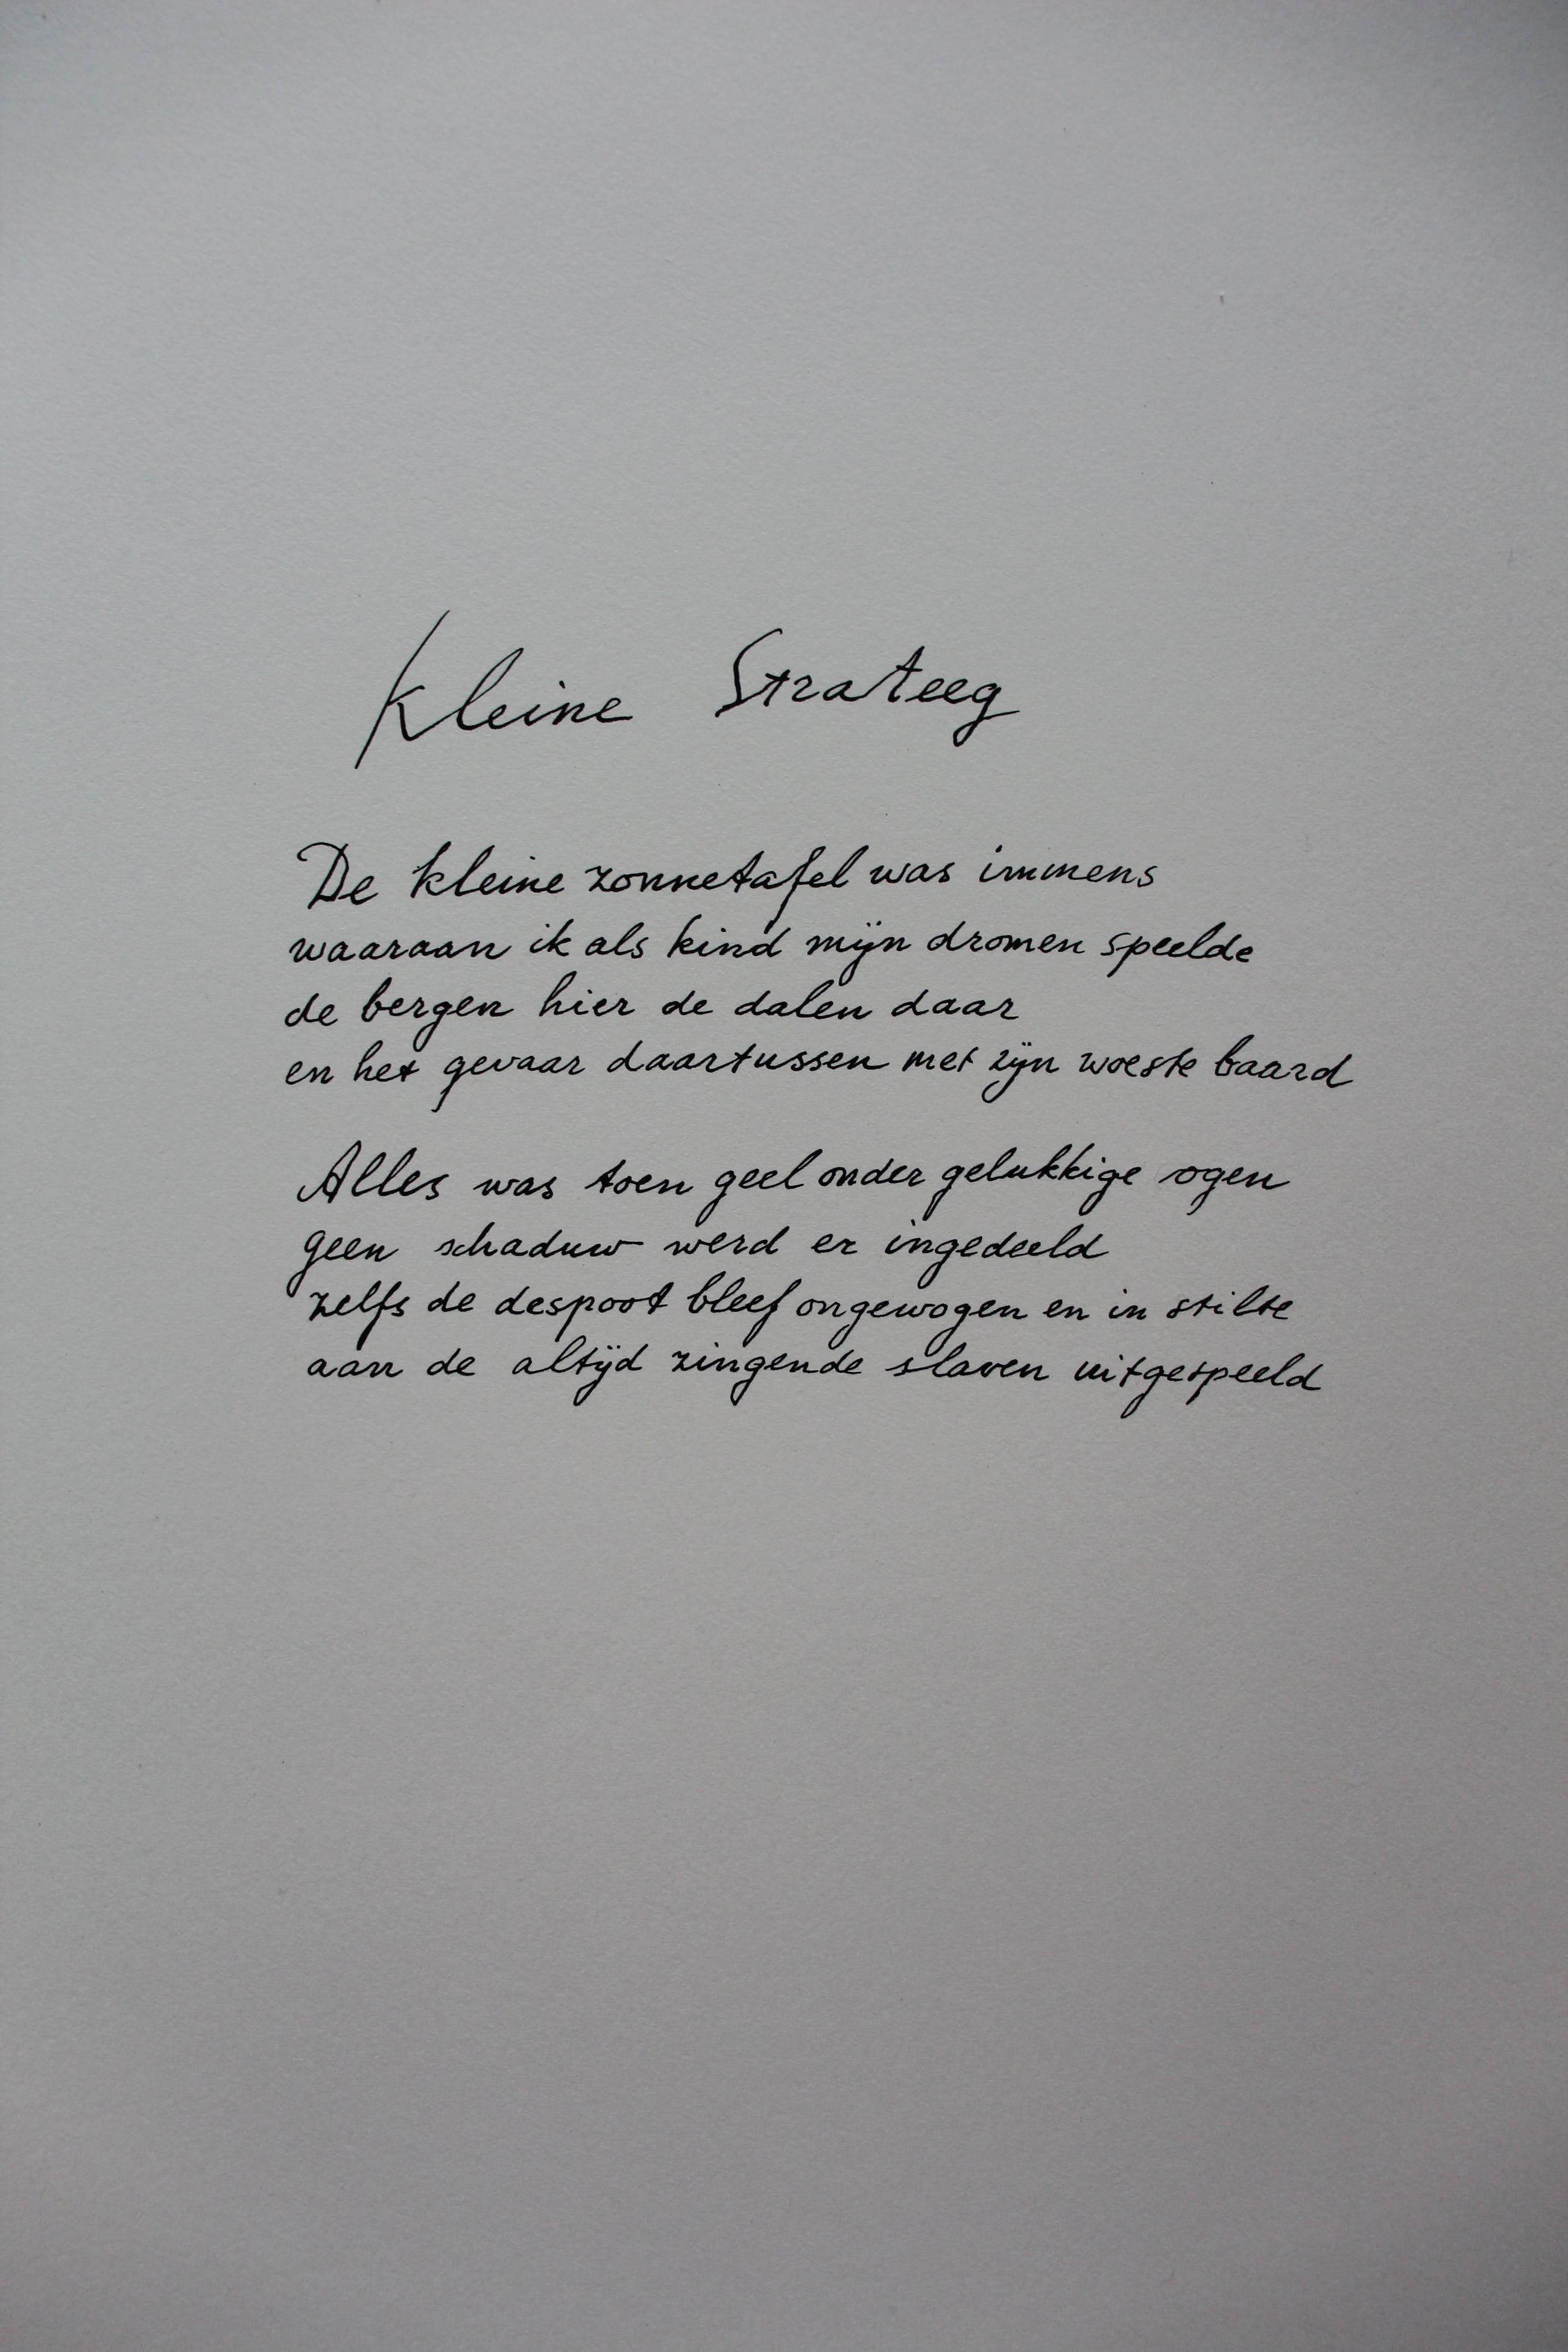 Kleine Strateeg
De kleine zonnetafel was immens
waaraan ik als kind mijn dromen speelde
de bergen hier de dalen daar
en het gevaar daartussen met zijn woeste baard
Alles was toen geel onder gelukkige ogen
geen schaduw werd er ingedeeld
zelfs de despoot bleef ongewogen en in stilte
aan de altijd zingende slaven uitgespeeld